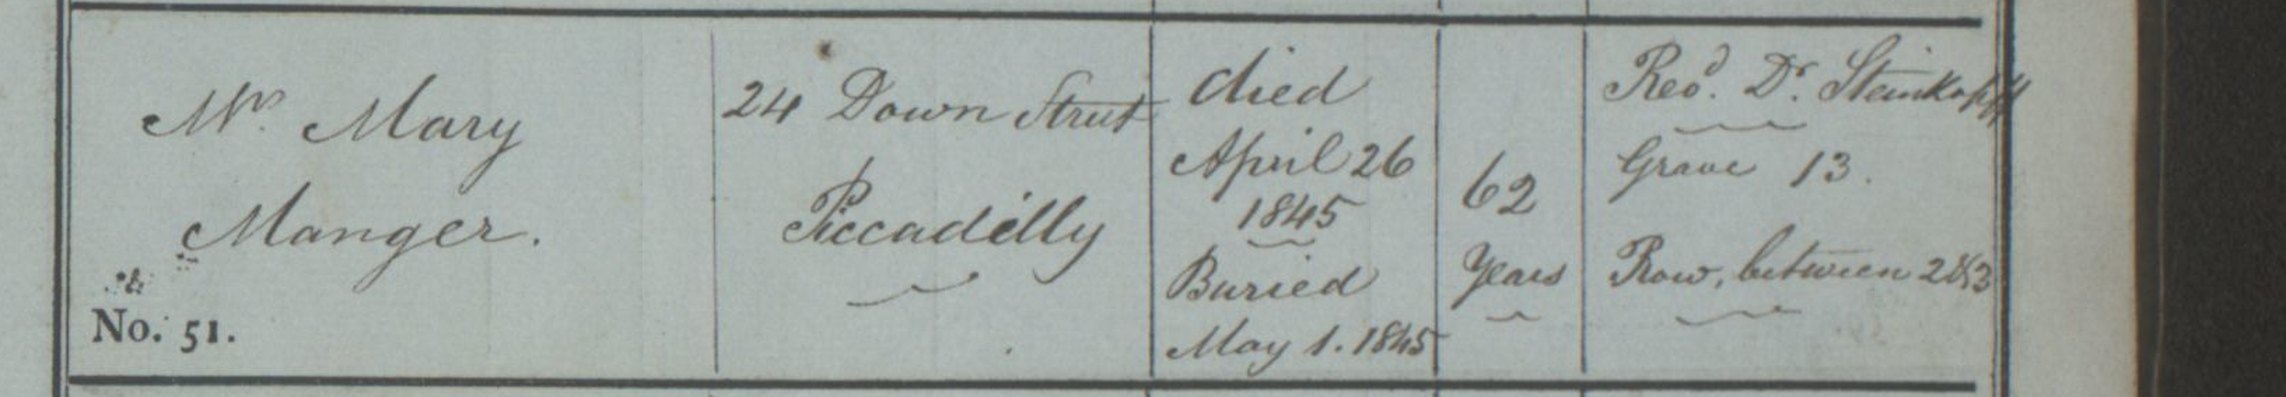 Mrs. Mary
Manger.
No. 51.
24 Down Street
Piccadilly
died
April 26
1845
Buried
May 1. 1845
62
Years
Revd. Dr. Steinkopff
Grave 13.
Row, between 2&3